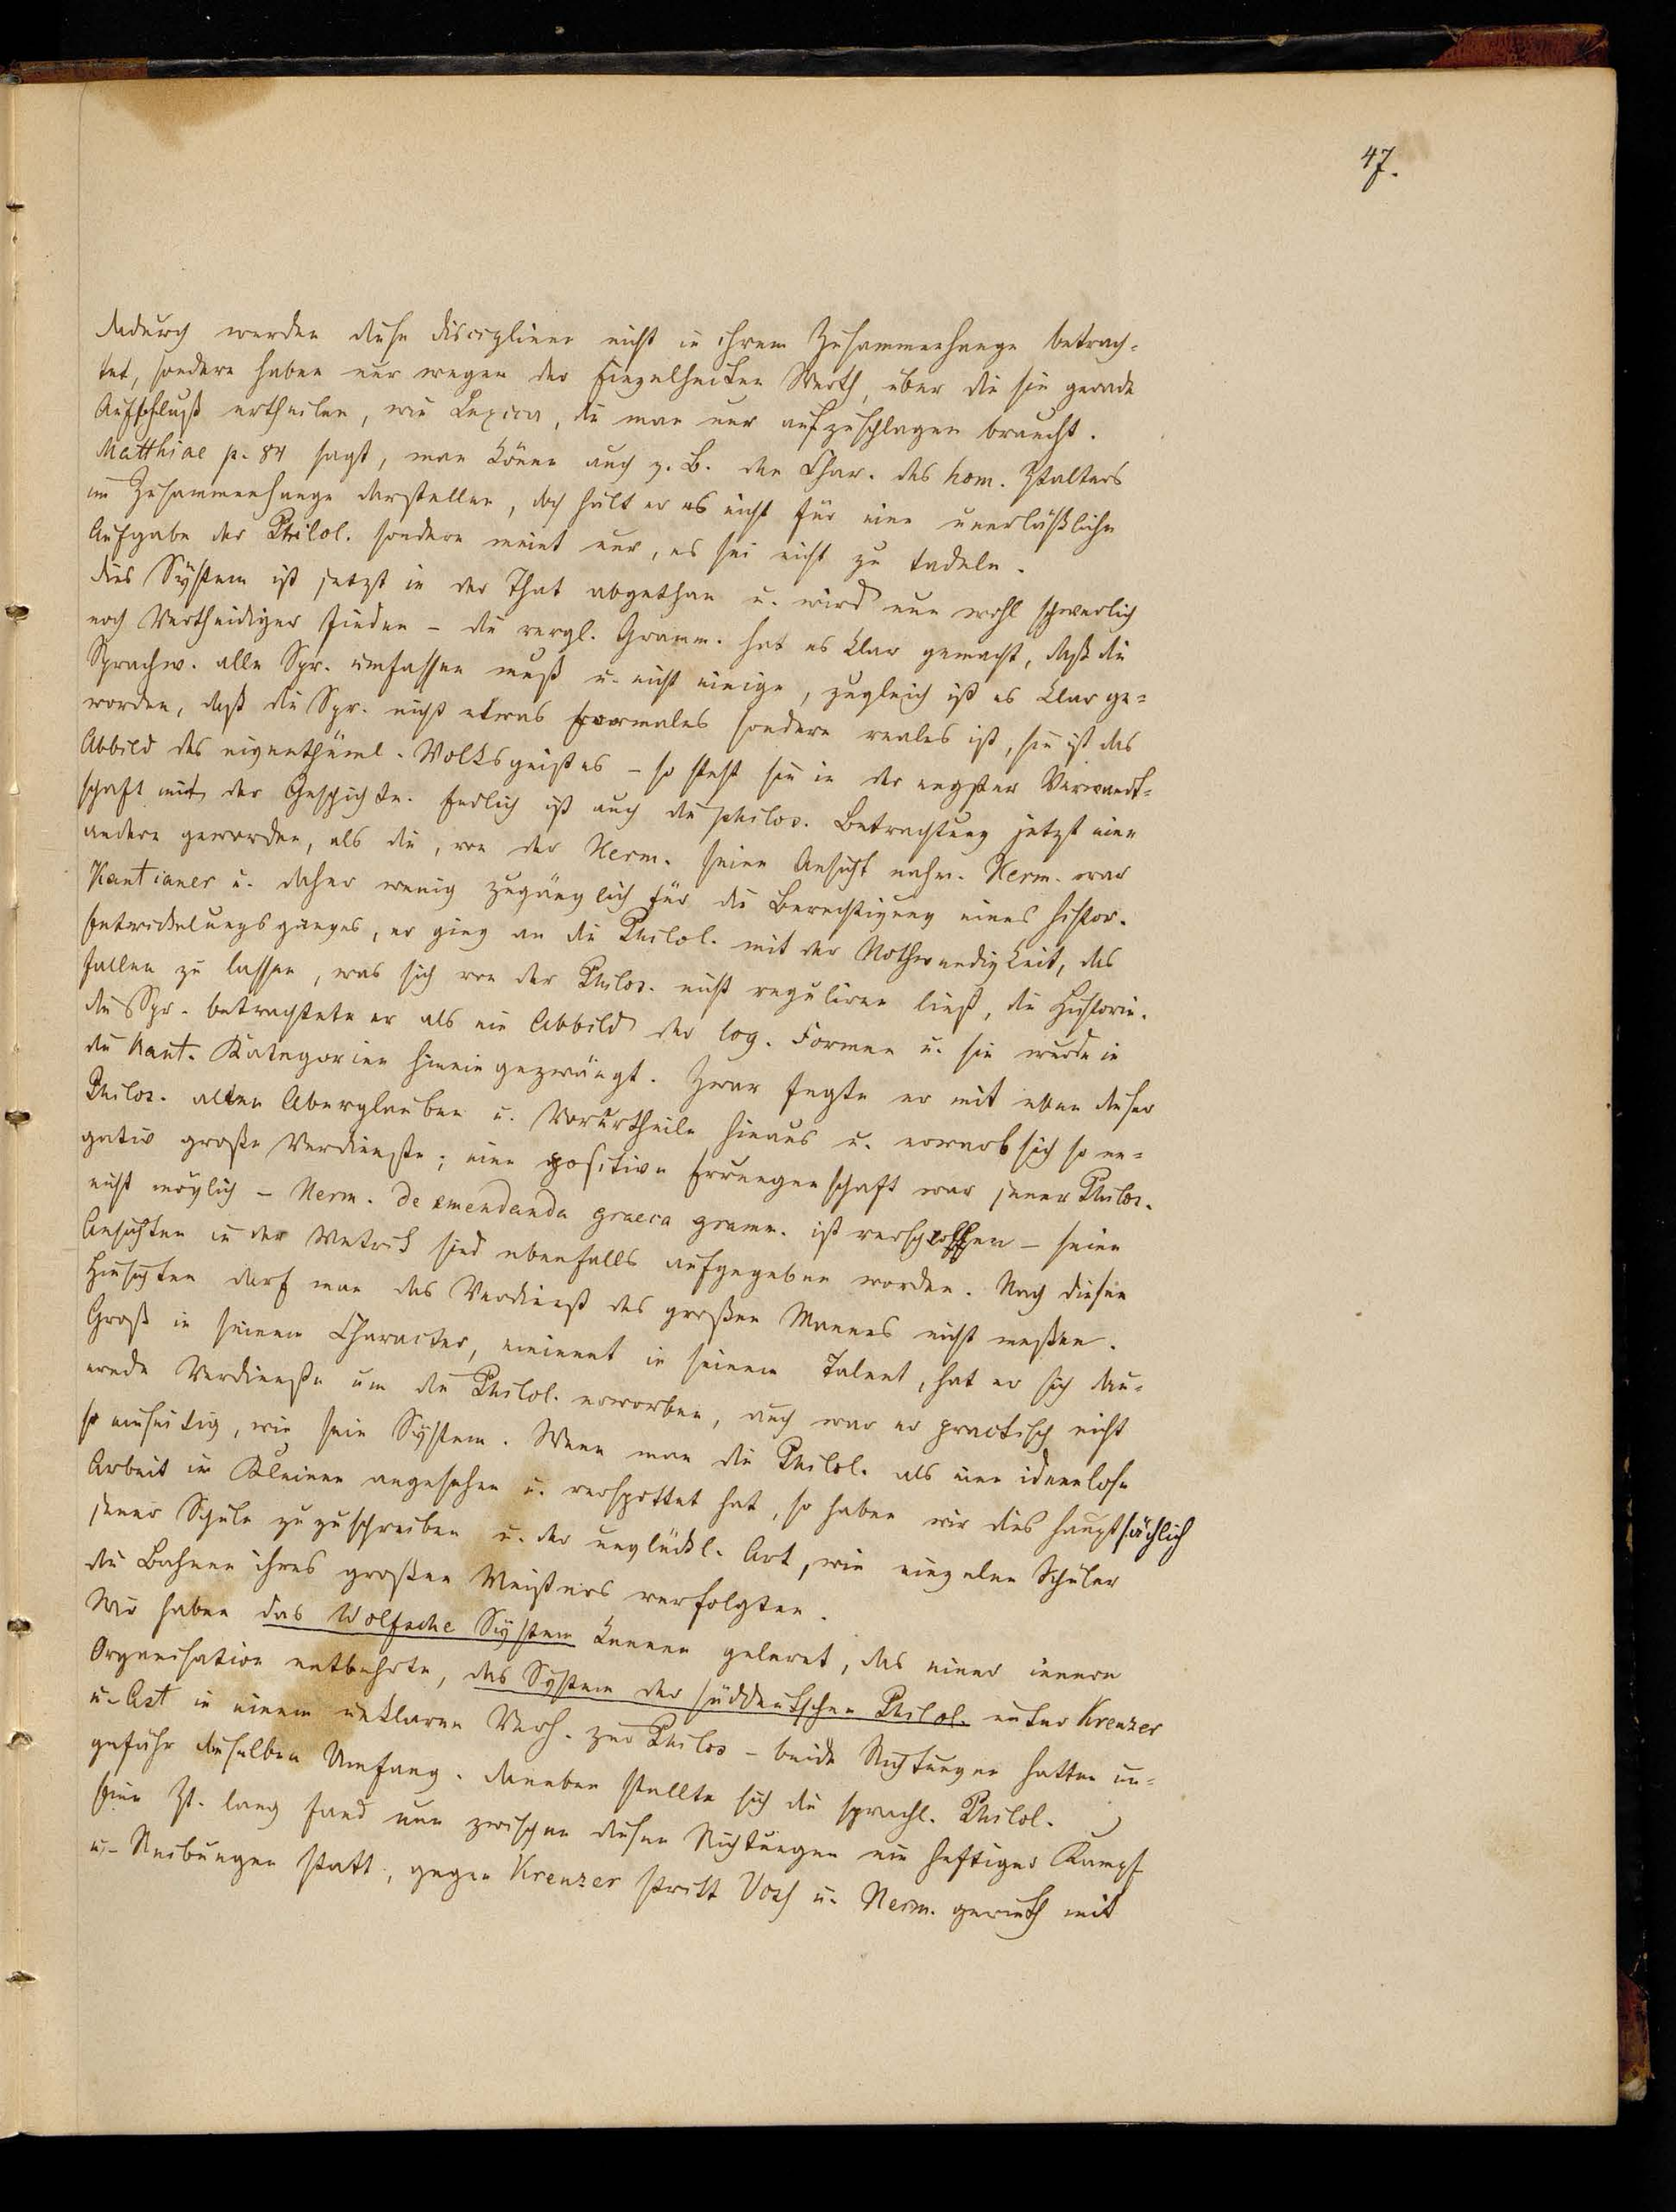 47.
dadurch werden diese Disciplinen nicht in ihrem Zusammenhange betrach-
tet, sondern haben nur wegen der Einzelheiten Werth, über die sie gerade
Aufschluß ertheilen, wie Lexica, die man nur aufzuschlagen braucht.
Matthiae p. 84 sagt, man könne auch z. B. den Char. des hom. Ztalters
im Zusammenhange darstellen, doch hält er es nicht für eine unerläßliche
Aufgabe der Philol. sondern meint nur, es sei nicht zu tadeln.
Dies System ist jetzt in der That abgethan u. wird nun wohl schwerlich
noch Vertheidiger finden – die vergl. Gramm. hat es klar gemacht, daß die
Sprachw. alle Spr. umfassen muß u. nicht einige, zugleich ist es klar ge-
worden, daß die Spr. nicht etwas Formales sondern reales ist, sie ist das
Abbild des eigenthüml. Volksgeistes – so steht sie in der engsten Verwandt-
schaft mit der Geschichte. Endlich ist auch die philos. Betrachtung jetzt eine
andere geworden, als die, von der Herm. seine Ansicht nahm. Herm. war
Kantianer u. daher wenig zugänglich für die Berechtigung eines histor.
Entwickelungsganges, er ging an die Philol. mit der Nothwendigkeit, das
fallen zu lassen, was sich von der Philos. nicht reguliren ließ, die Historie.
Die Spr. betrachtete er als ein Abbild der log. Formen u. sie wurde in
die Kant. Kategorien hineingezwängt. Zwar fegte er mit eben dieser
Philos. alten Aberglauben u. Vorurtheile hinaus u. erwarb sich so ne-
gativ große Verdienste; eine positive Errungenschaft war jener Philos.
nicht möglich – Herm. de emendanda graeca gramm. ist verschollen – seine
Ansichten in der Metrik sind ebenfalls aufgegeben worden. Nach diesen
Hinsichten darf man das Verdienst des großen Mannes nicht messen.
Groß in seinem Character, eminent in seinem Talent, hat er sich dau-
ernde Verdienste um die Philol. erworben, auch war er practisch nicht
so einseitig, wie sein System. Wenn man die Philol. als eine ideenlose
Arbeit im Kleinen angesehen u. verspottet hat, so haben wir dies hauptsächlich
jener Schule zuzuschreiben u. der unglückl. Art, wie einzelne Schüler
die Bahnen ihres großen Meisters verfolgten.
Wir haben das Wolfsche System kennen gelernt, das einer innern
Organisation entbehrte, das System der süddeutschen Philol. unter Kreuzer
u. Ast in einem unklaren Verh. zur Philos – beide Richtungen hatten un-
gefähr denselben Umfang. Daneben stellte sich die sprachl. Philol.
Eine Zt. lang fand nun zwischen diesen Richtungen ein heftiger Kampf
u. Reibungen statt, gegen Kreuzer stritt Voß u. Herm. gerieth mit